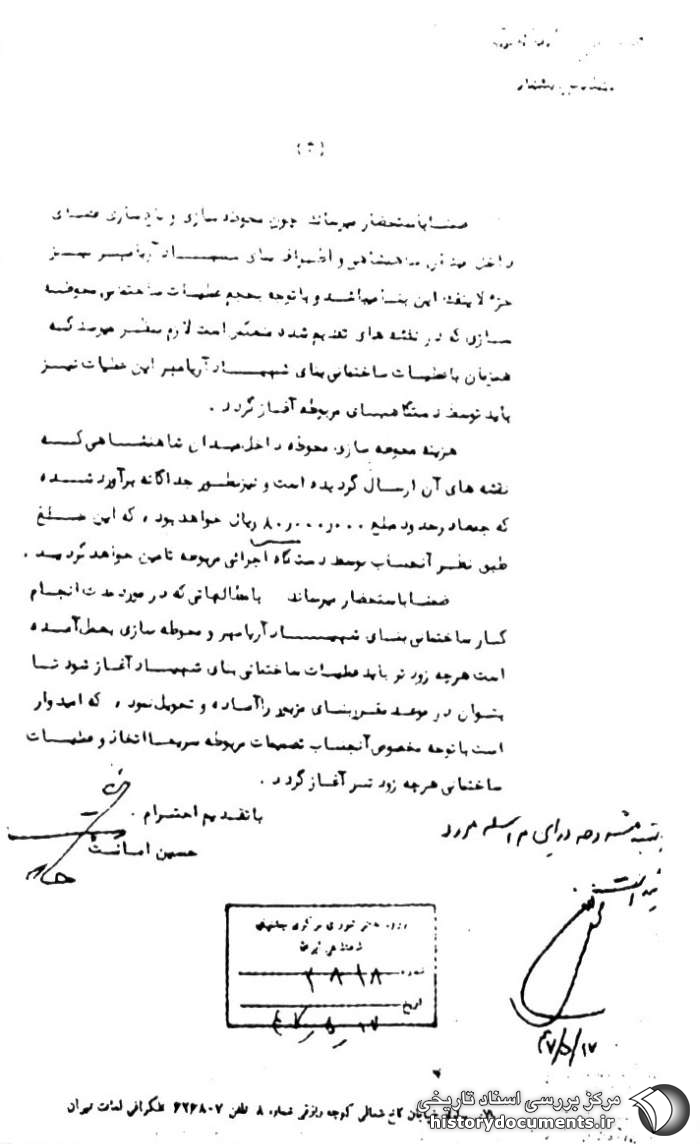 ضمنا باستحضار میرساند چون محوطه سازی و باغ سازی فضای
داخل میدان شاهنشاهی و اطراف بنای شهیاد آریامهر نیز
جزء لاینفک این بنا میباشد و با توجه بحجم عملیات ساختمانی محوطه
سازی که در نقشه های تقدیم شده منعکس است لازم بنظر میرسد که
همزمان با عملیات ساختمانی بنای شهیاد آریامهر این عملیات نیز
باید توسط دستگاههای مربوطه آغاز گردد .
هزینه محوطه سازی محوطه داخل میدان شاهنشاهی که
نقشه های آن ارسال گردیده است و نیز بطور جداگانه برآورد شده
که جمعا در حدود مبلغ ۸۰٫۰۰۰٫۰۰۰ ریال خواهد بود ، که این مبلغ
طبق نظر آنجناب توسط دستگاه اجرائی مربوطه تامین خواهد گردید .
ضمنا باستحضار میرساند با مطالعاتی که در مورد مدت انجام
کار ساختمانی بنای شهیاد آریامهر و محوطه سازی بعمل آمده
است هرچه زود تر باید عملیات ساختمانی بنای شهیاد آغاز شود تا
بتوان در موعد مقرر بنای مزبور را آماده و تحویل نمود ، که امیدوار
است با توجه مخصوص آنجناب تصمیمات مربوطه سریعا اتخاذ و عملیات
ساختمانی هرچه زود تر آغاز گردد .
با تقدیم احترام .
حسین امانت
ورود به دفتر شورای مرکزی جشنهای
شاهنشاهی ایران
شماره ۲۸۱۸
تاریخ ۱۷ ر ۵ ر ۴۷
۴۷/۵/۱۷
خیابان کاخ شمالی کوچه شماره ۸ تلفن ۶۲۶۸۰۷ تلگرافی امانت تهران
مرکز بررسی اسناد تاریخی
historydocuments.ir